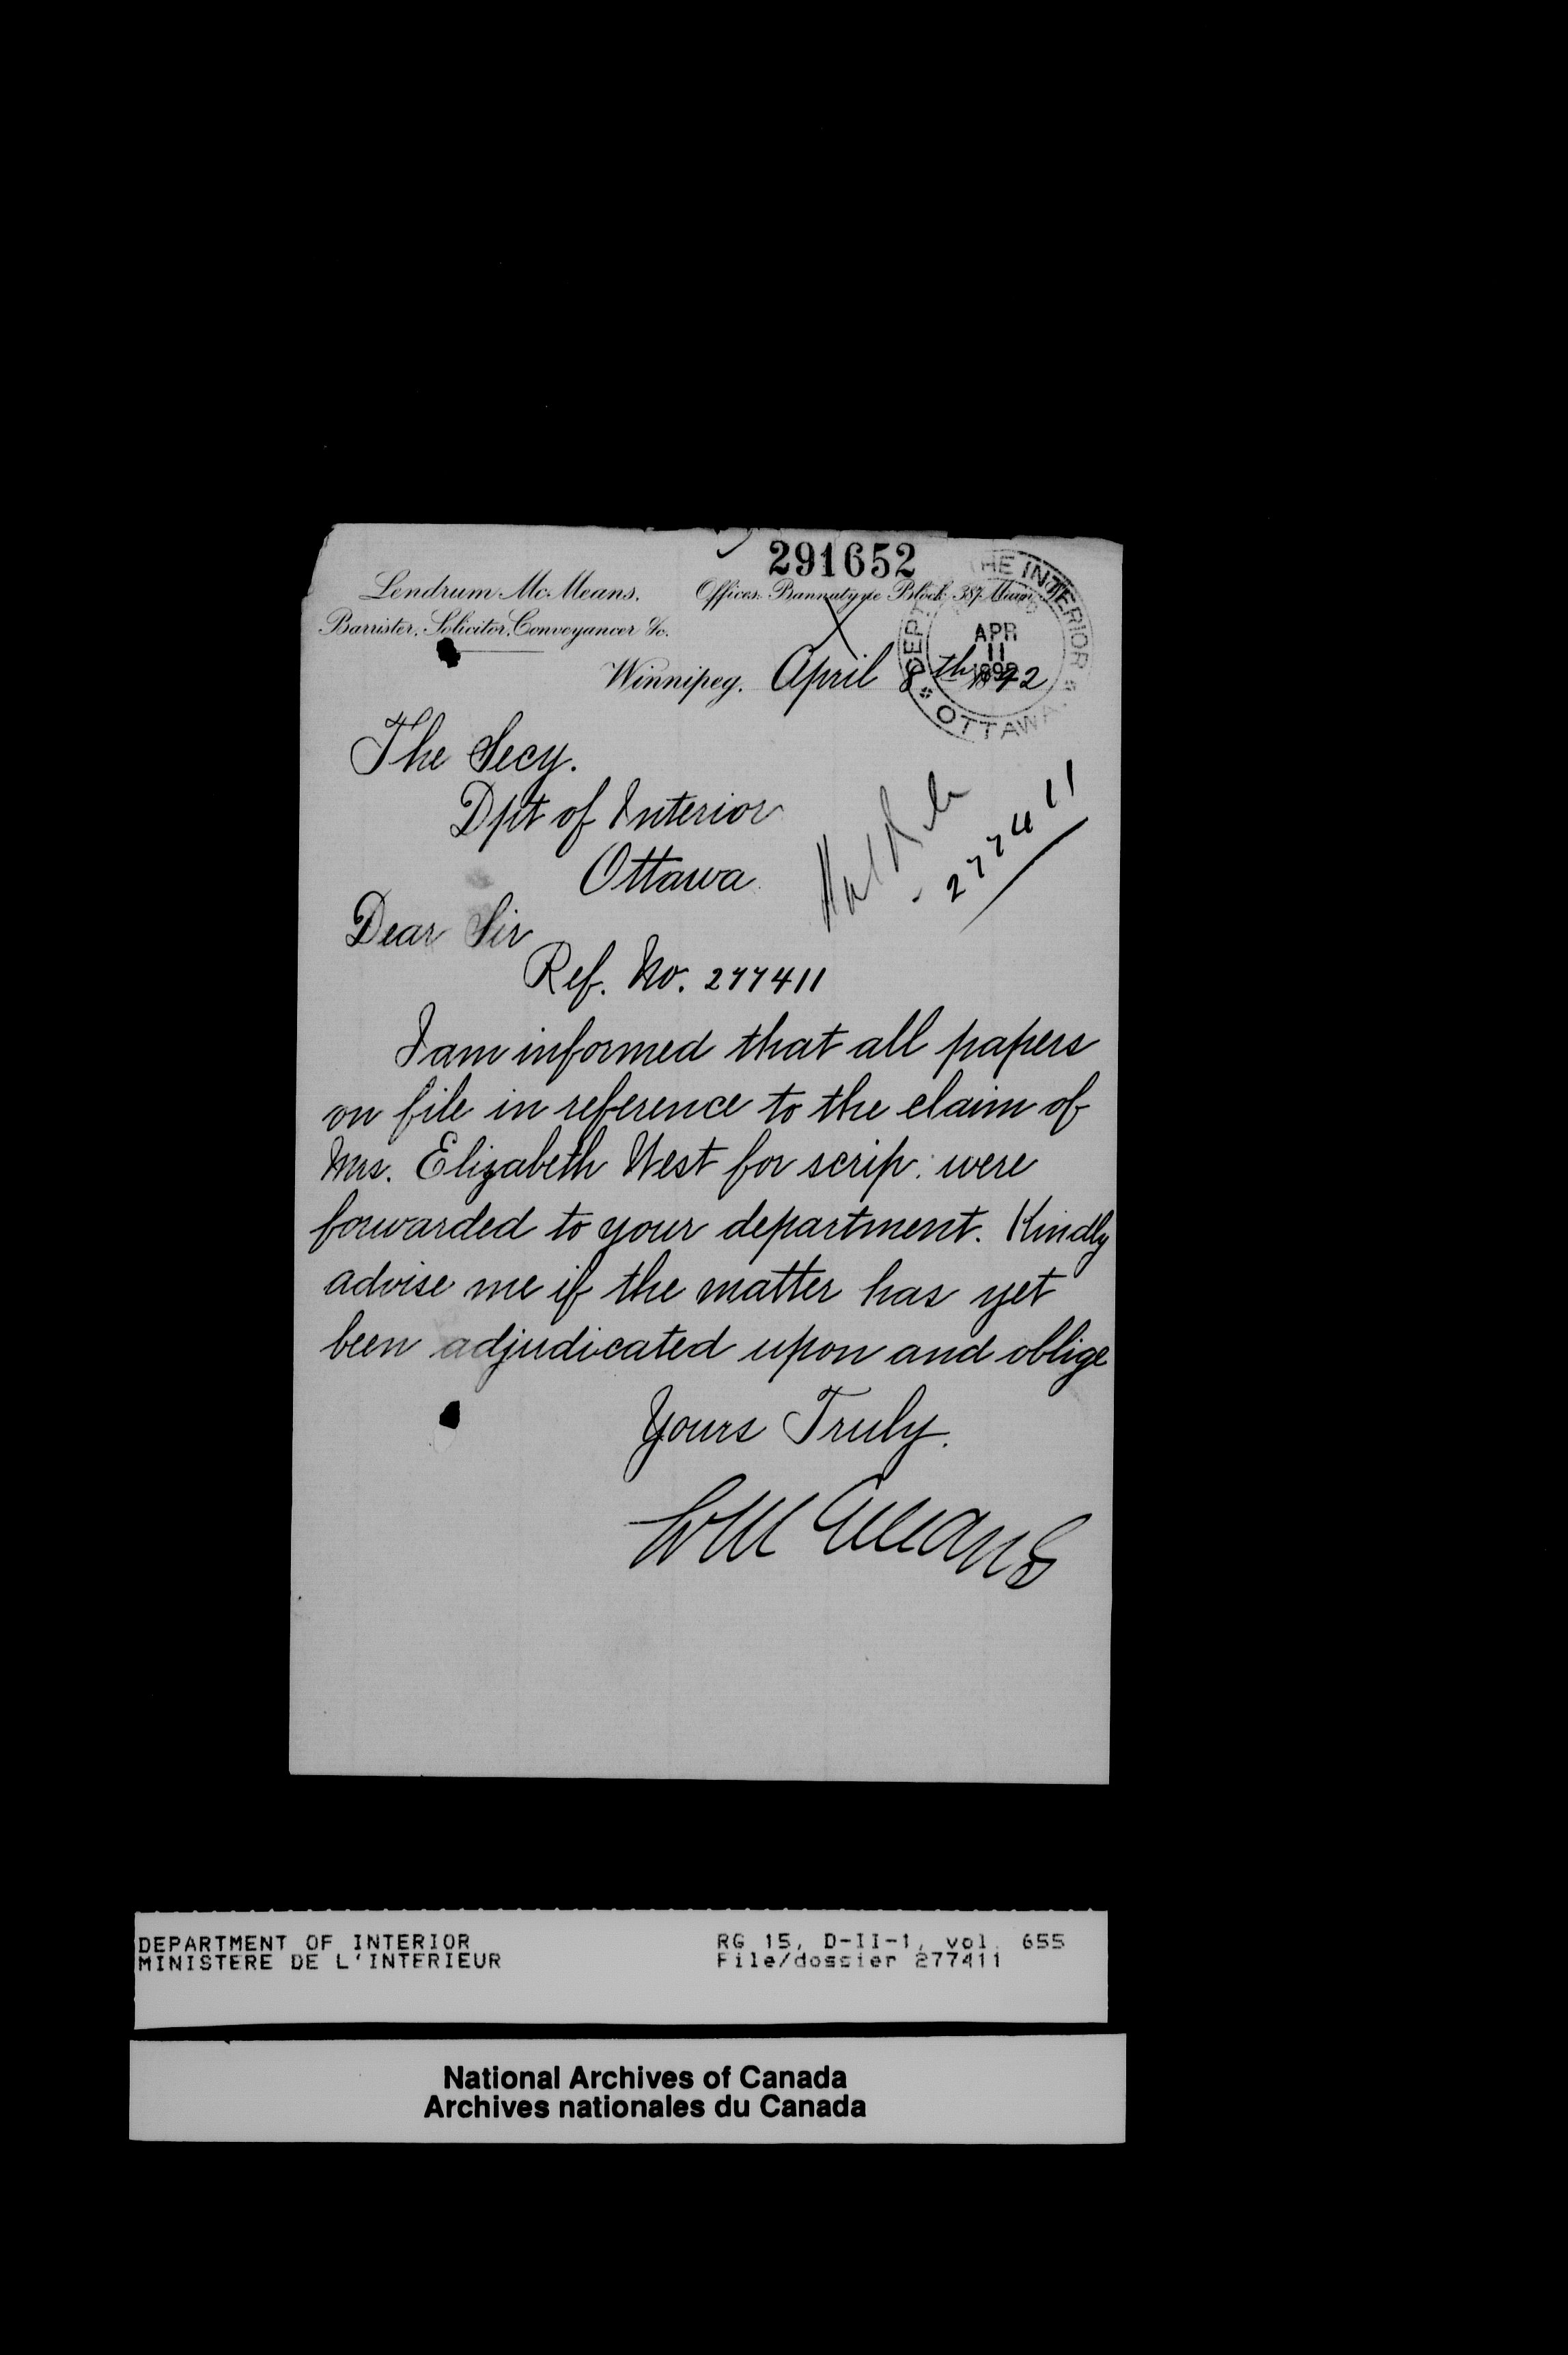 291652
Lendrum McMeans.
Offices. Bannatyne Block 387 Main
Barrister, Solicitor, Conveyancer &c.
DEPT THE INTERIOR
APR
11
1892
OTTAWA
Winnipeg. April 8th 1892
The Secy.
Dpt of Interior
Ottawa
277411
Dear Sir
Ref. No. 277411
I am informed that all papers
on file in reference to the claim of
Mrs. Elizabeth West for scrip: were
forwarded to your department. Kindly
advise me if the matter has yet
been adjudicated upon and oblige
Yours Truly.
L McMeans
DEPARTMENT OF INTERIOR
MINISTERE DE L'INTERIEUR
RG 15, D-II-1, vol. 655
File/dossier 277411
National Archives of Canada
Archives nationales du Canada